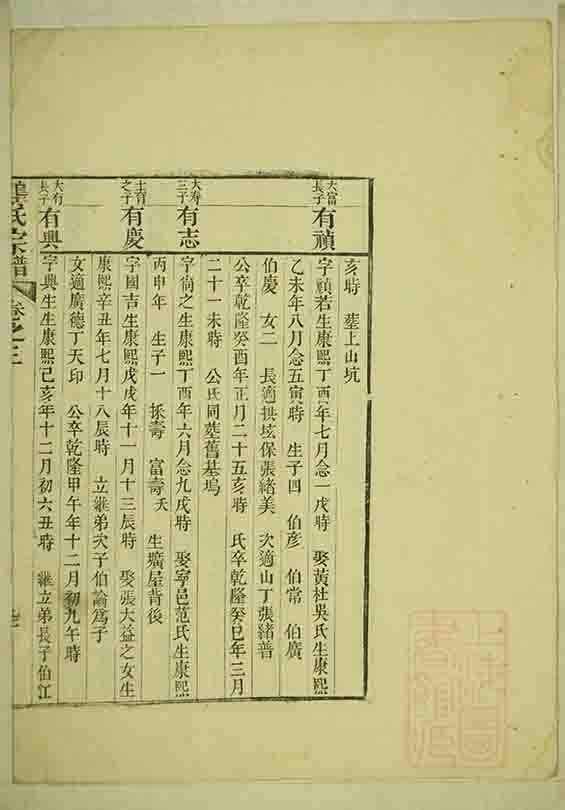 亥時 塟上山坑
大富長子
有禎
字禎若生康熙丁酉年七月念一戌時 娶黃杜吳氏生康熙
乙未年八月念五寅時 生子四 伯彦 伯常 伯廣
伯慶 女二 長適拱垓保張緒美 次適山丁張緒普
公卒乾隆癸酉年正月二十五亥時 氏卒乾隆癸巳年三月
二十一未時 公氏同塟舊基塢
大寿三子
有志
字尙之生康熙丁酉年六月念九戌時 娶寧邑范氏生康熙
丙申年 生子一 壽 富壽夭 生壙屋背後
士育之子
有慶
字國吉生康熙戊戌年十一月十三辰時 娶張大益之女生
康熙辛丑年七月十八辰時 立繼弟次子伯論爲子
女適廣德丁天印 公卒乾隆甲午年十二月初九午時
大有長子
有興
字興生生康熙己亥年十二月初六丑時 繼立弟長子伯江
氏宗譜 卷之三